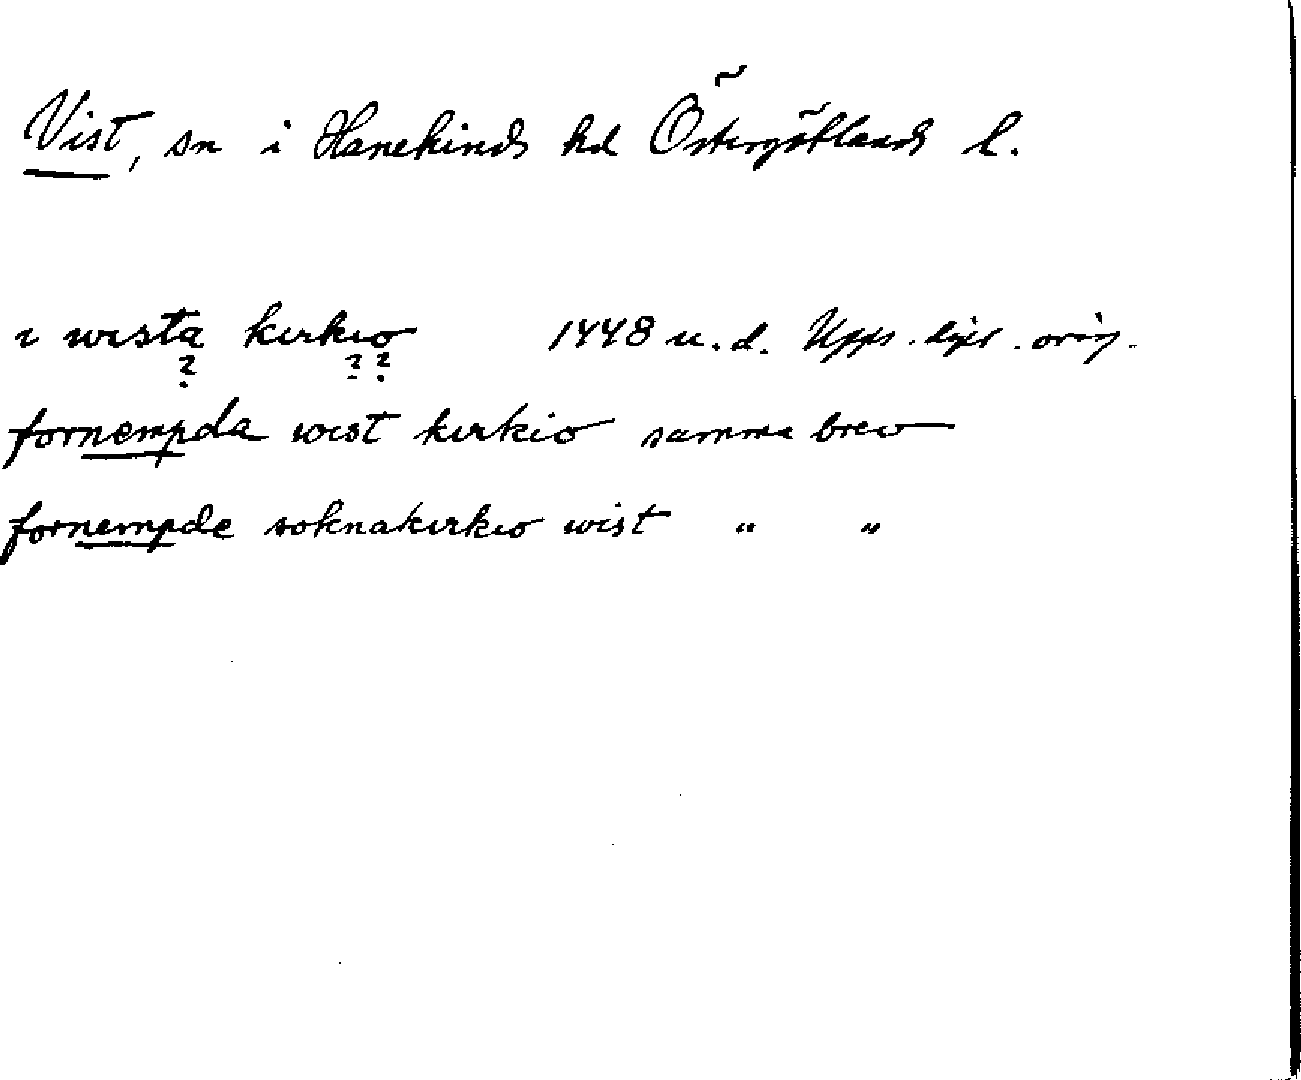 Vist, sn i Hanekinds hd Östergötlands l.
i wista kirkio 1448 u.d. Upps. dipl. orig.
? ? ?
fornempda wist kirkio samma brev
fornempde soknakirkio wist " "